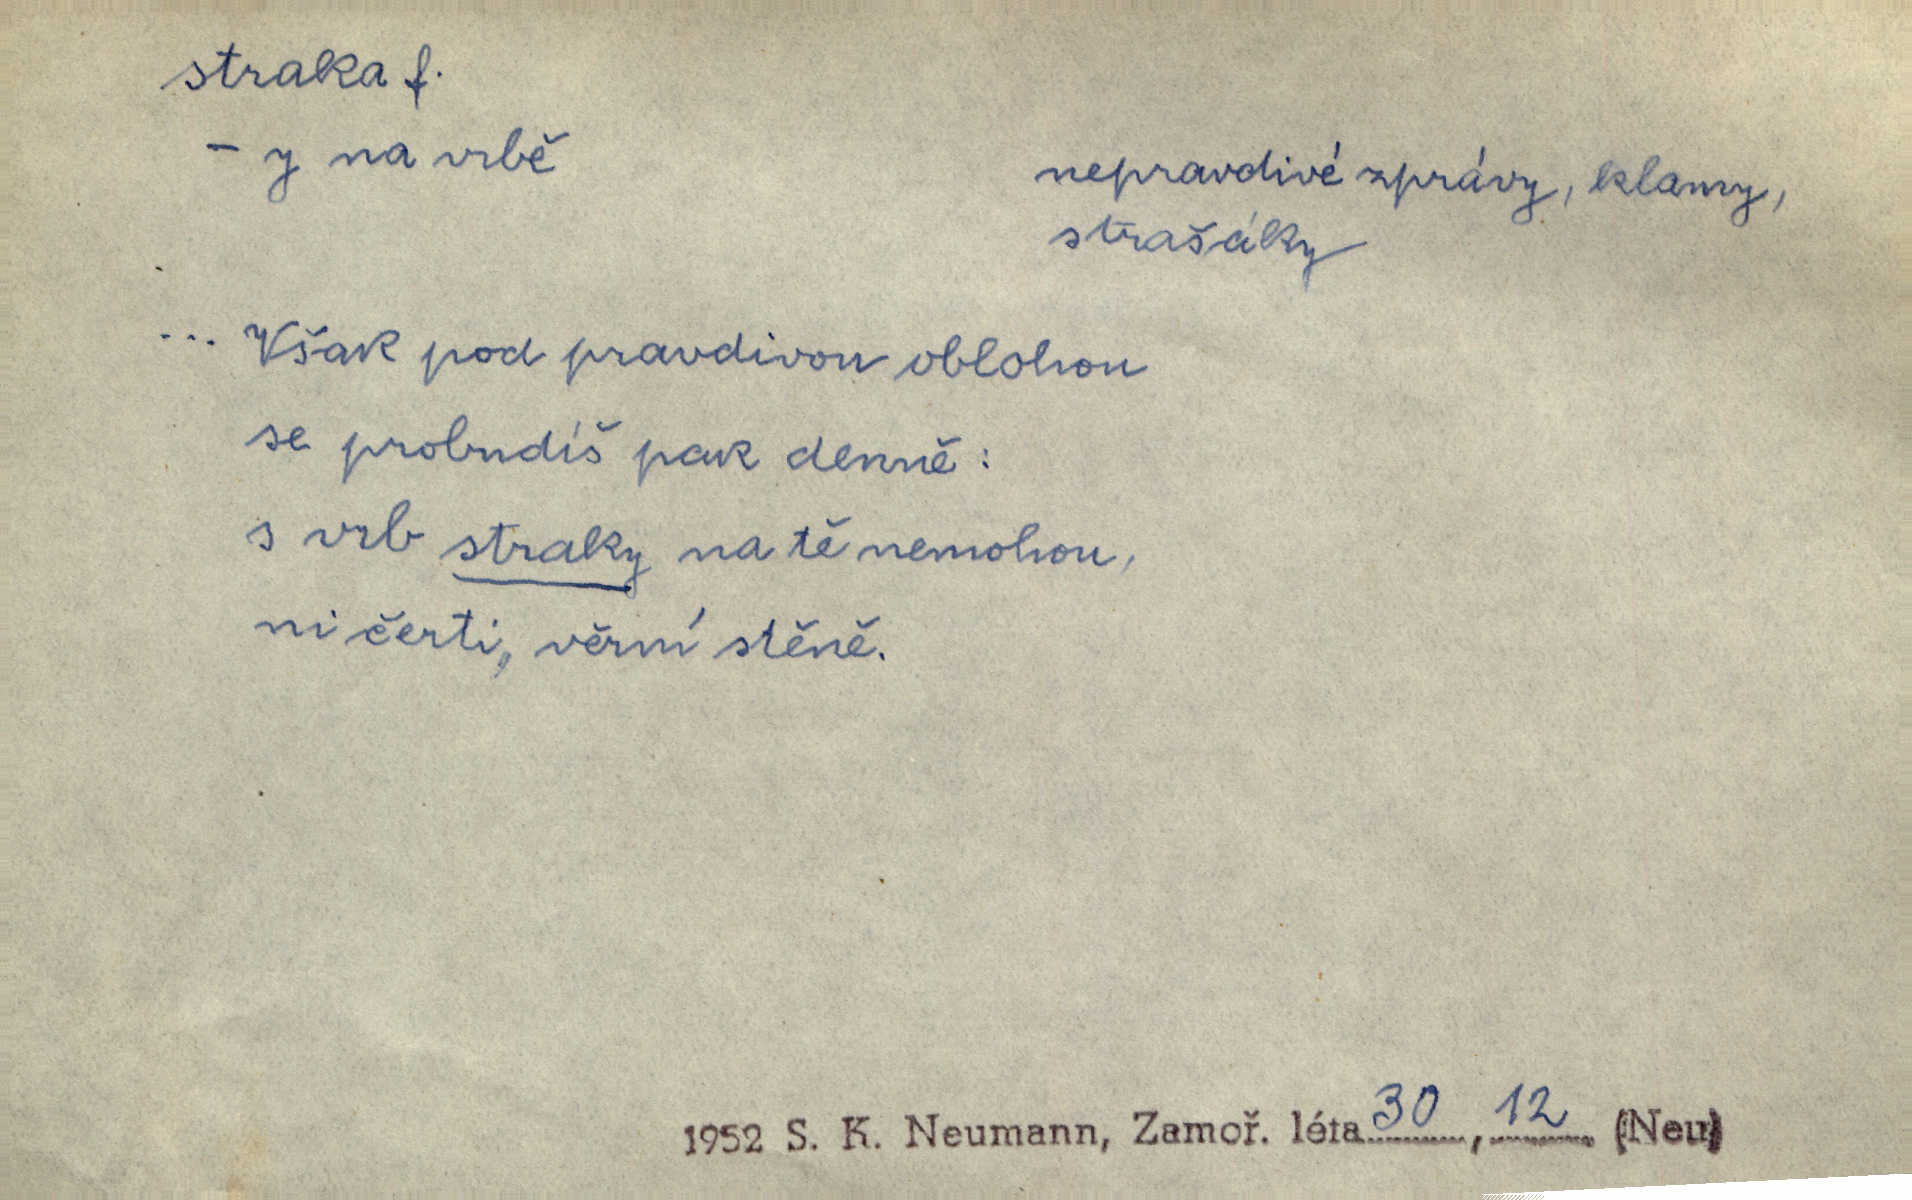 straka f.
- y na vrbě
nepravdivé zprávy, klamy,
strašáky
... Však pod pravdivou oblohou
se probudíš pak denně:
s vrb straky na tě nemohou,
ni čerti, věrní stěně.
1952 S. K. Neumann, Zamoř. léta 30, 12 (Neu)